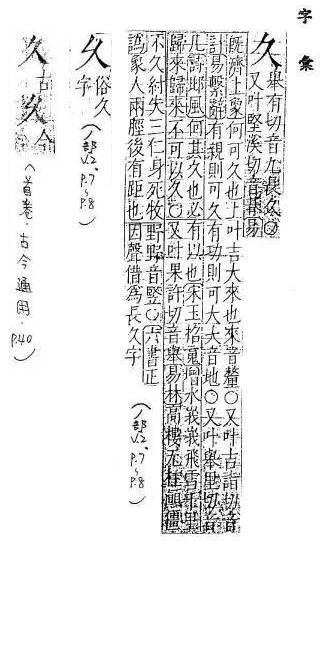 字彙
久 舉有切音九長久○
又叶堅溪切音基易
旣濟上象何可久也上叶吉大來也來音釐○又叶吉詣切音
計易繫辭有親則可久有功則可大大音地○又叶舉里切音
几詩邶風何其久也必有以也宋玉招䰟增冰我我飛雪千里
歸來歸來不可以久○又叶果許切音舉易林高樓無柱顚僵
不久紂失三仁身死牧野野音豎○六書正
譌象人兩脛後有距也因聲借為長久字
(丿部.V.2. P.7~P.8)
乆 俗久
字
(丿部V.2. P.7~P.8)
久古
乆今
(首卷.古今通用. P.40)